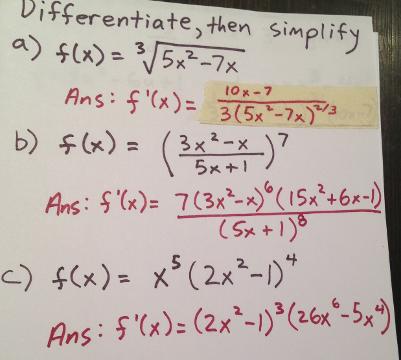 Differentiate, then simplify
a) f(x) = ³√(5x²-7x)
Ans: f'(x) = (10x-7) / (3(5x²-7x)^(2/3))
b) f(x) = ((3x²-x) / (5x+1))⁷
Ans: f'(x) = (7(3x²-x)⁶(15x²+6x-1)) / ((5x+1)⁸)
c) f(x) = x⁵(2x²-1)⁴
Ans: f'(x) = (2x²-1)³(26x⁶-5x⁴)